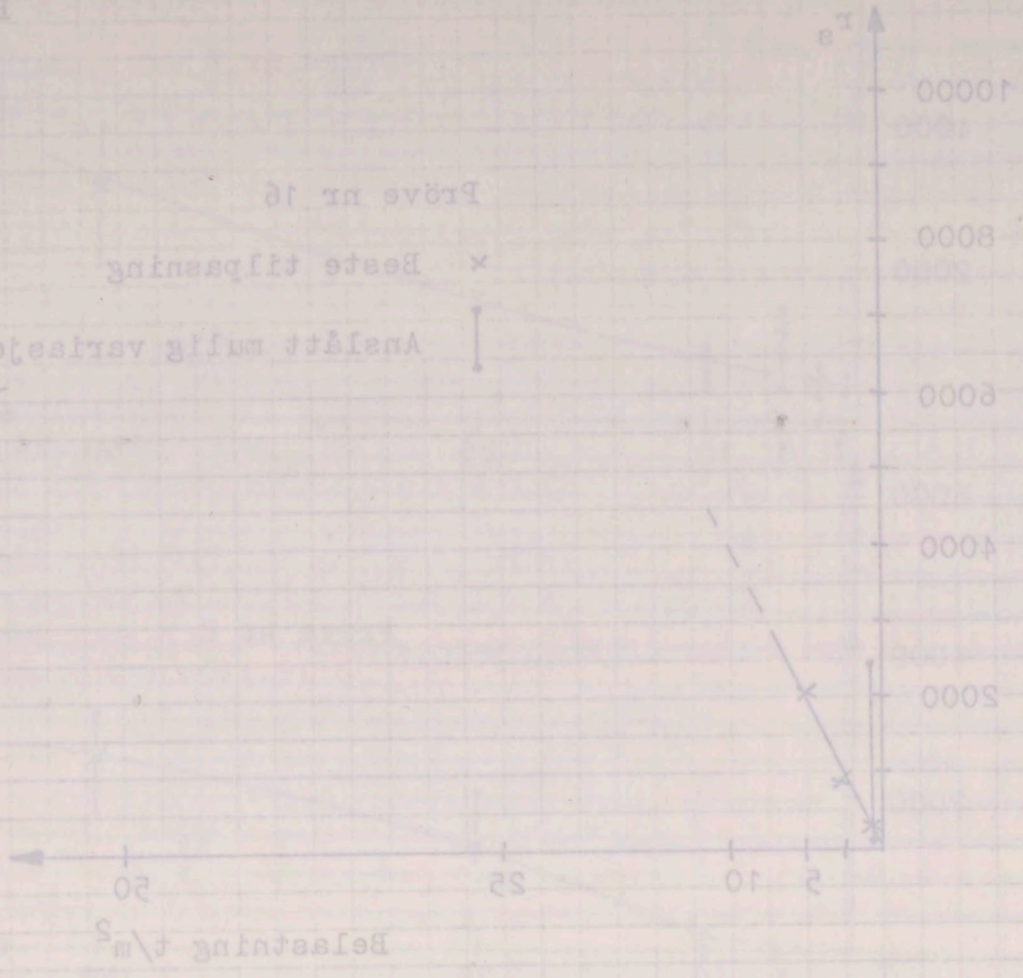 r_s
10000
8000
6000
4000
2000
Pröve nr 16
x Beste tilpasning
Anslått mulig variasjo
5 10 25 50
Belastning t/m²